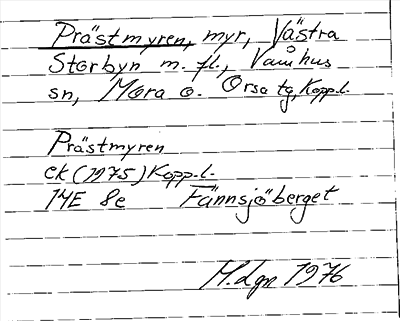 Prästmyren, myr, Västra
Storbyn m. fl., Våmhus
sn, Mora o. Orsa tg, Kopp.l.
Prästmyren
ek (1975) Kopp.l.
14E 8e Fännsjöberget
M.dgn 1976